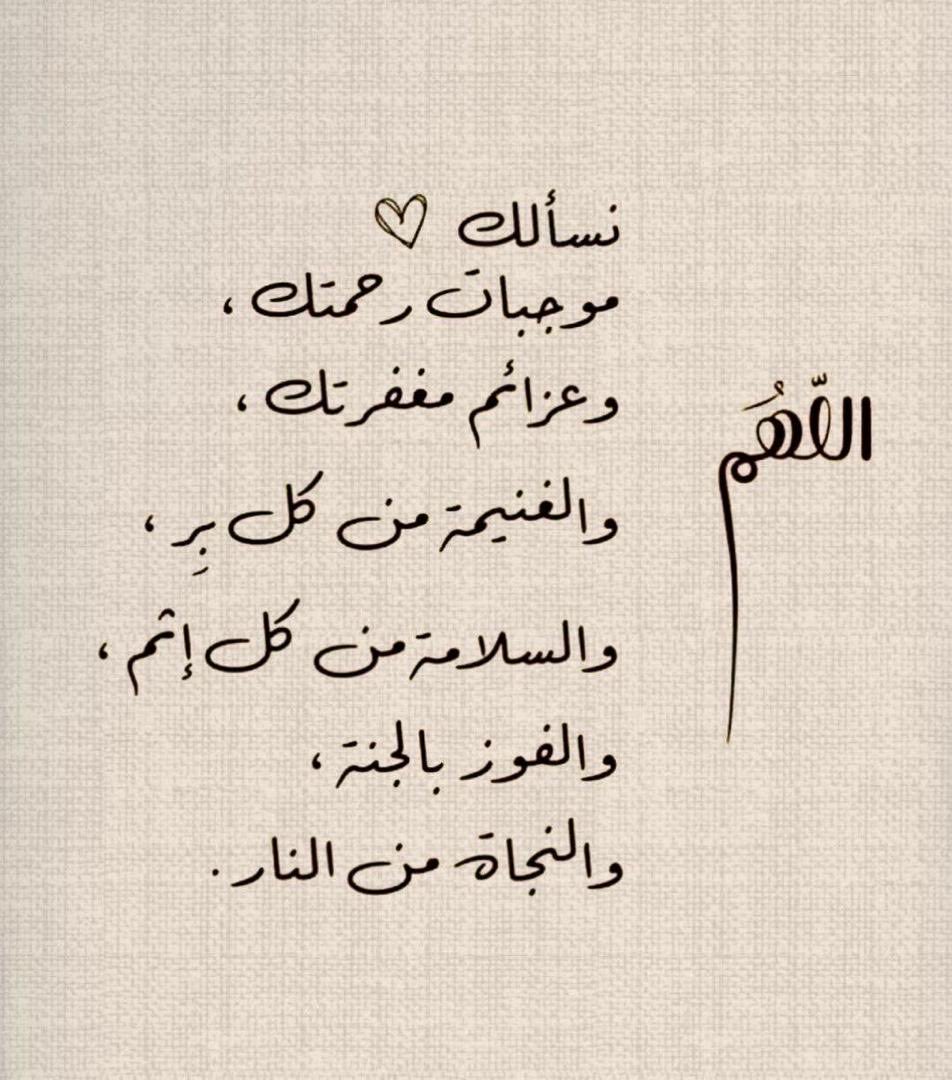 اللّهُم
نسألك ♡
موجبات رحمتك ،
وعزائم مغفرتك ،
والغنيمة من كل بِر ،
والسلامة من كل إثم ،
والفوز بالجنة ،
والنجاة من النار .